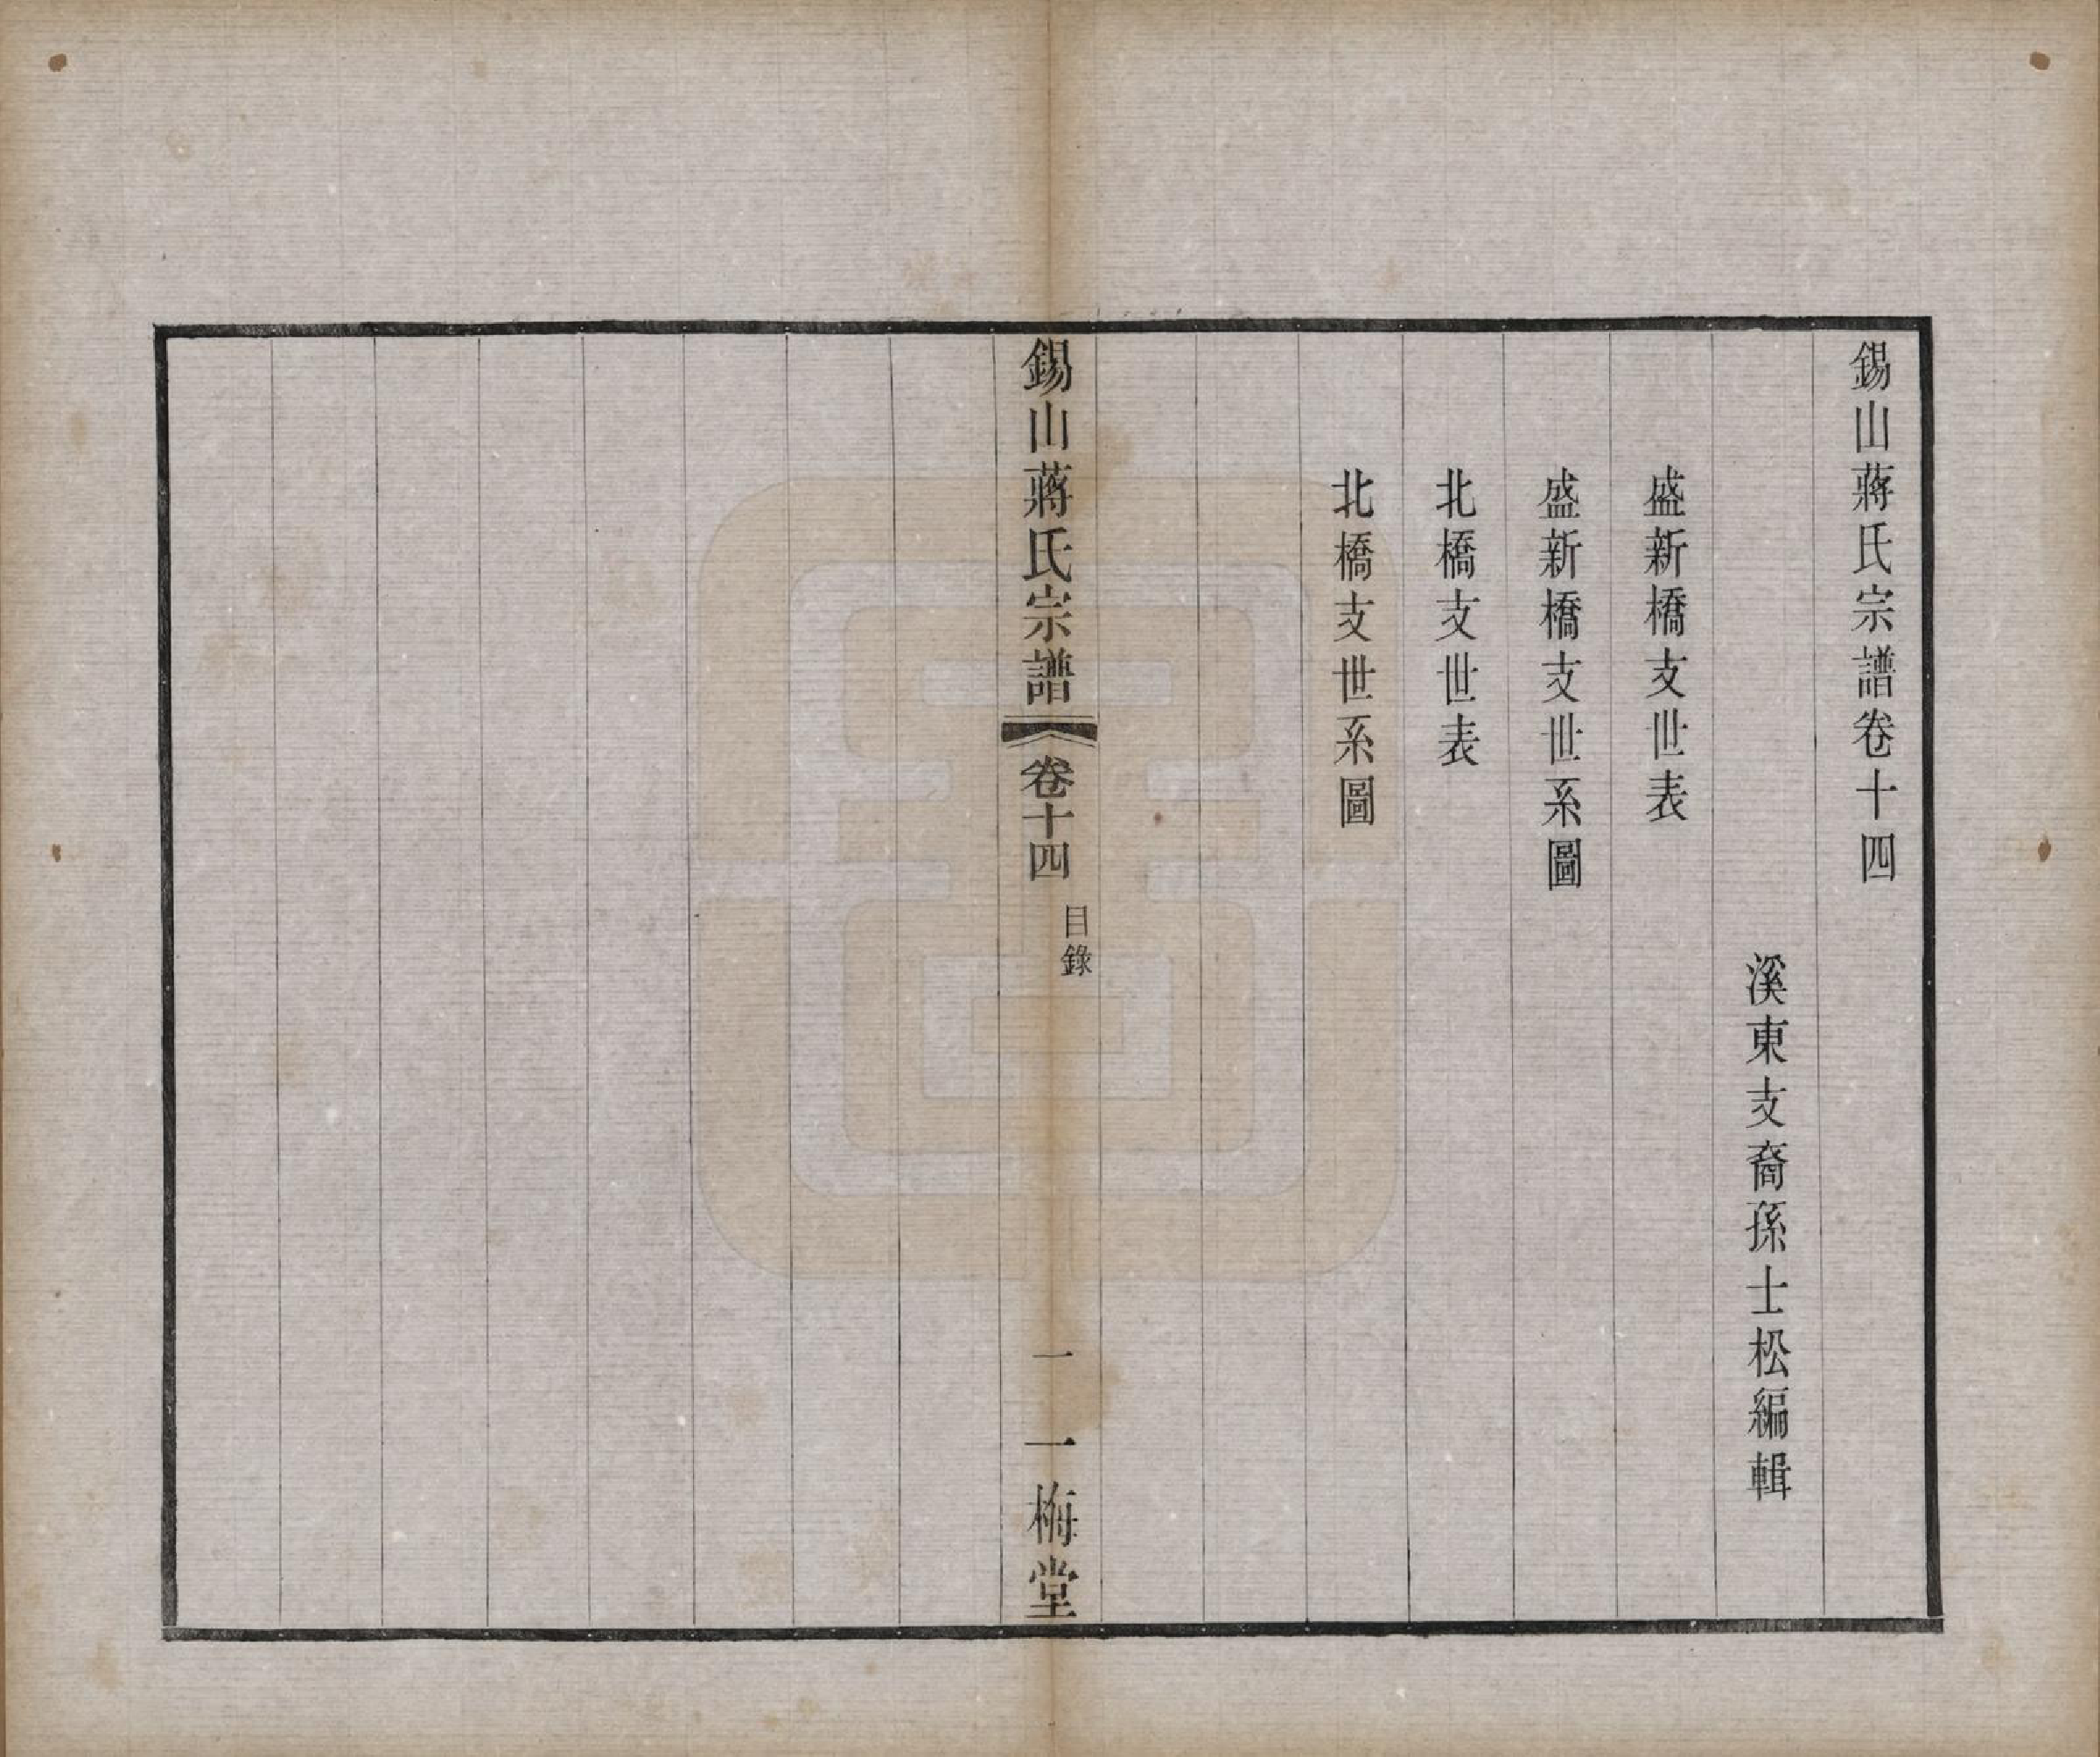 錫山蔣氏宗譜卷十四
溪東支裔孫士松編輯
盛新橋支世表
盛新橋支世系圖
北橋支世表
北橋支世系圖
錫山蔣氏宗譜
卷十四
目錄
一
一梅堂